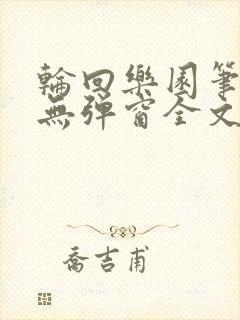 輪回樂園筆
無彈窗全文
喬吉甫